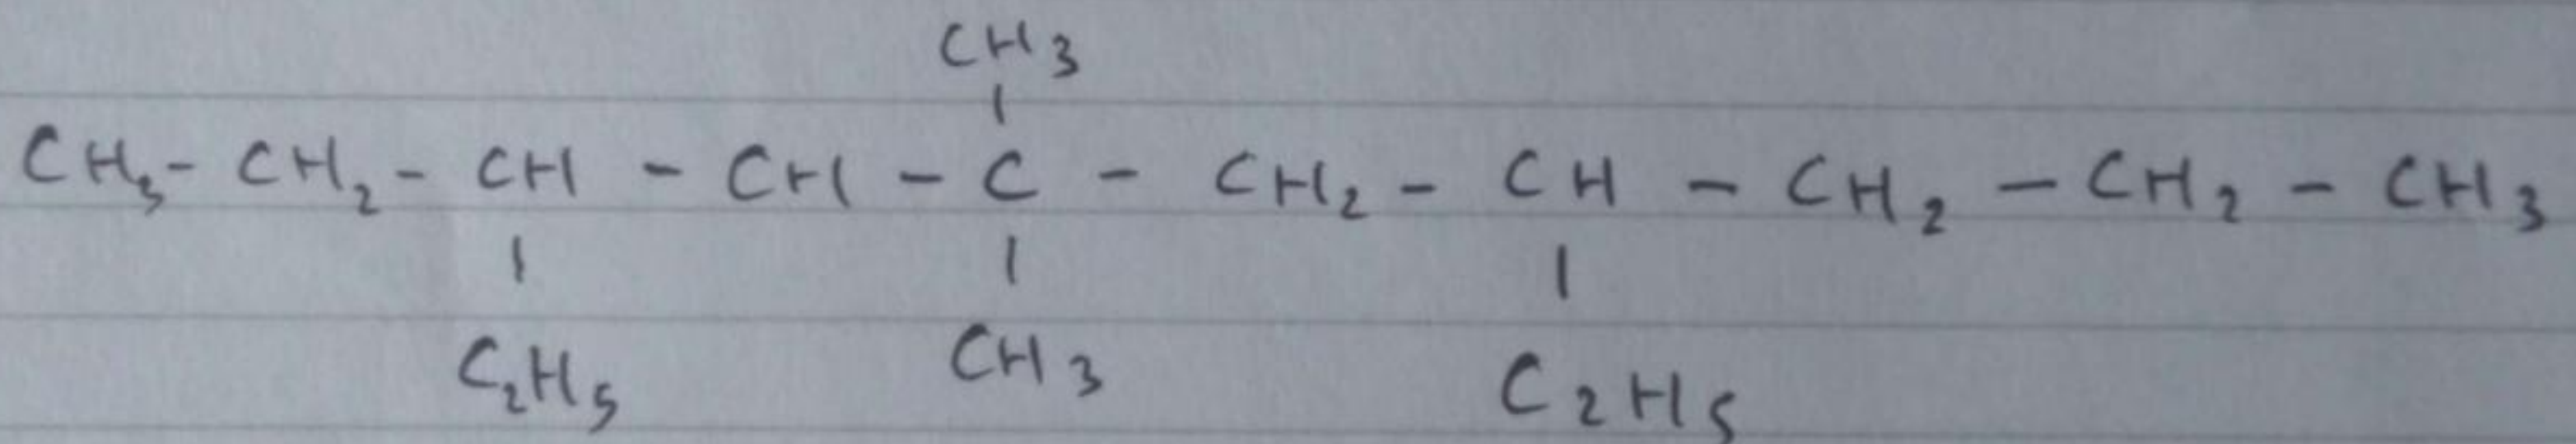 CH3
|
CH3 - CH2 - CH - CH - C - CH2 - CH - CH2 - CH2 - CH3
| | |
C2H5 CH3 C2H5